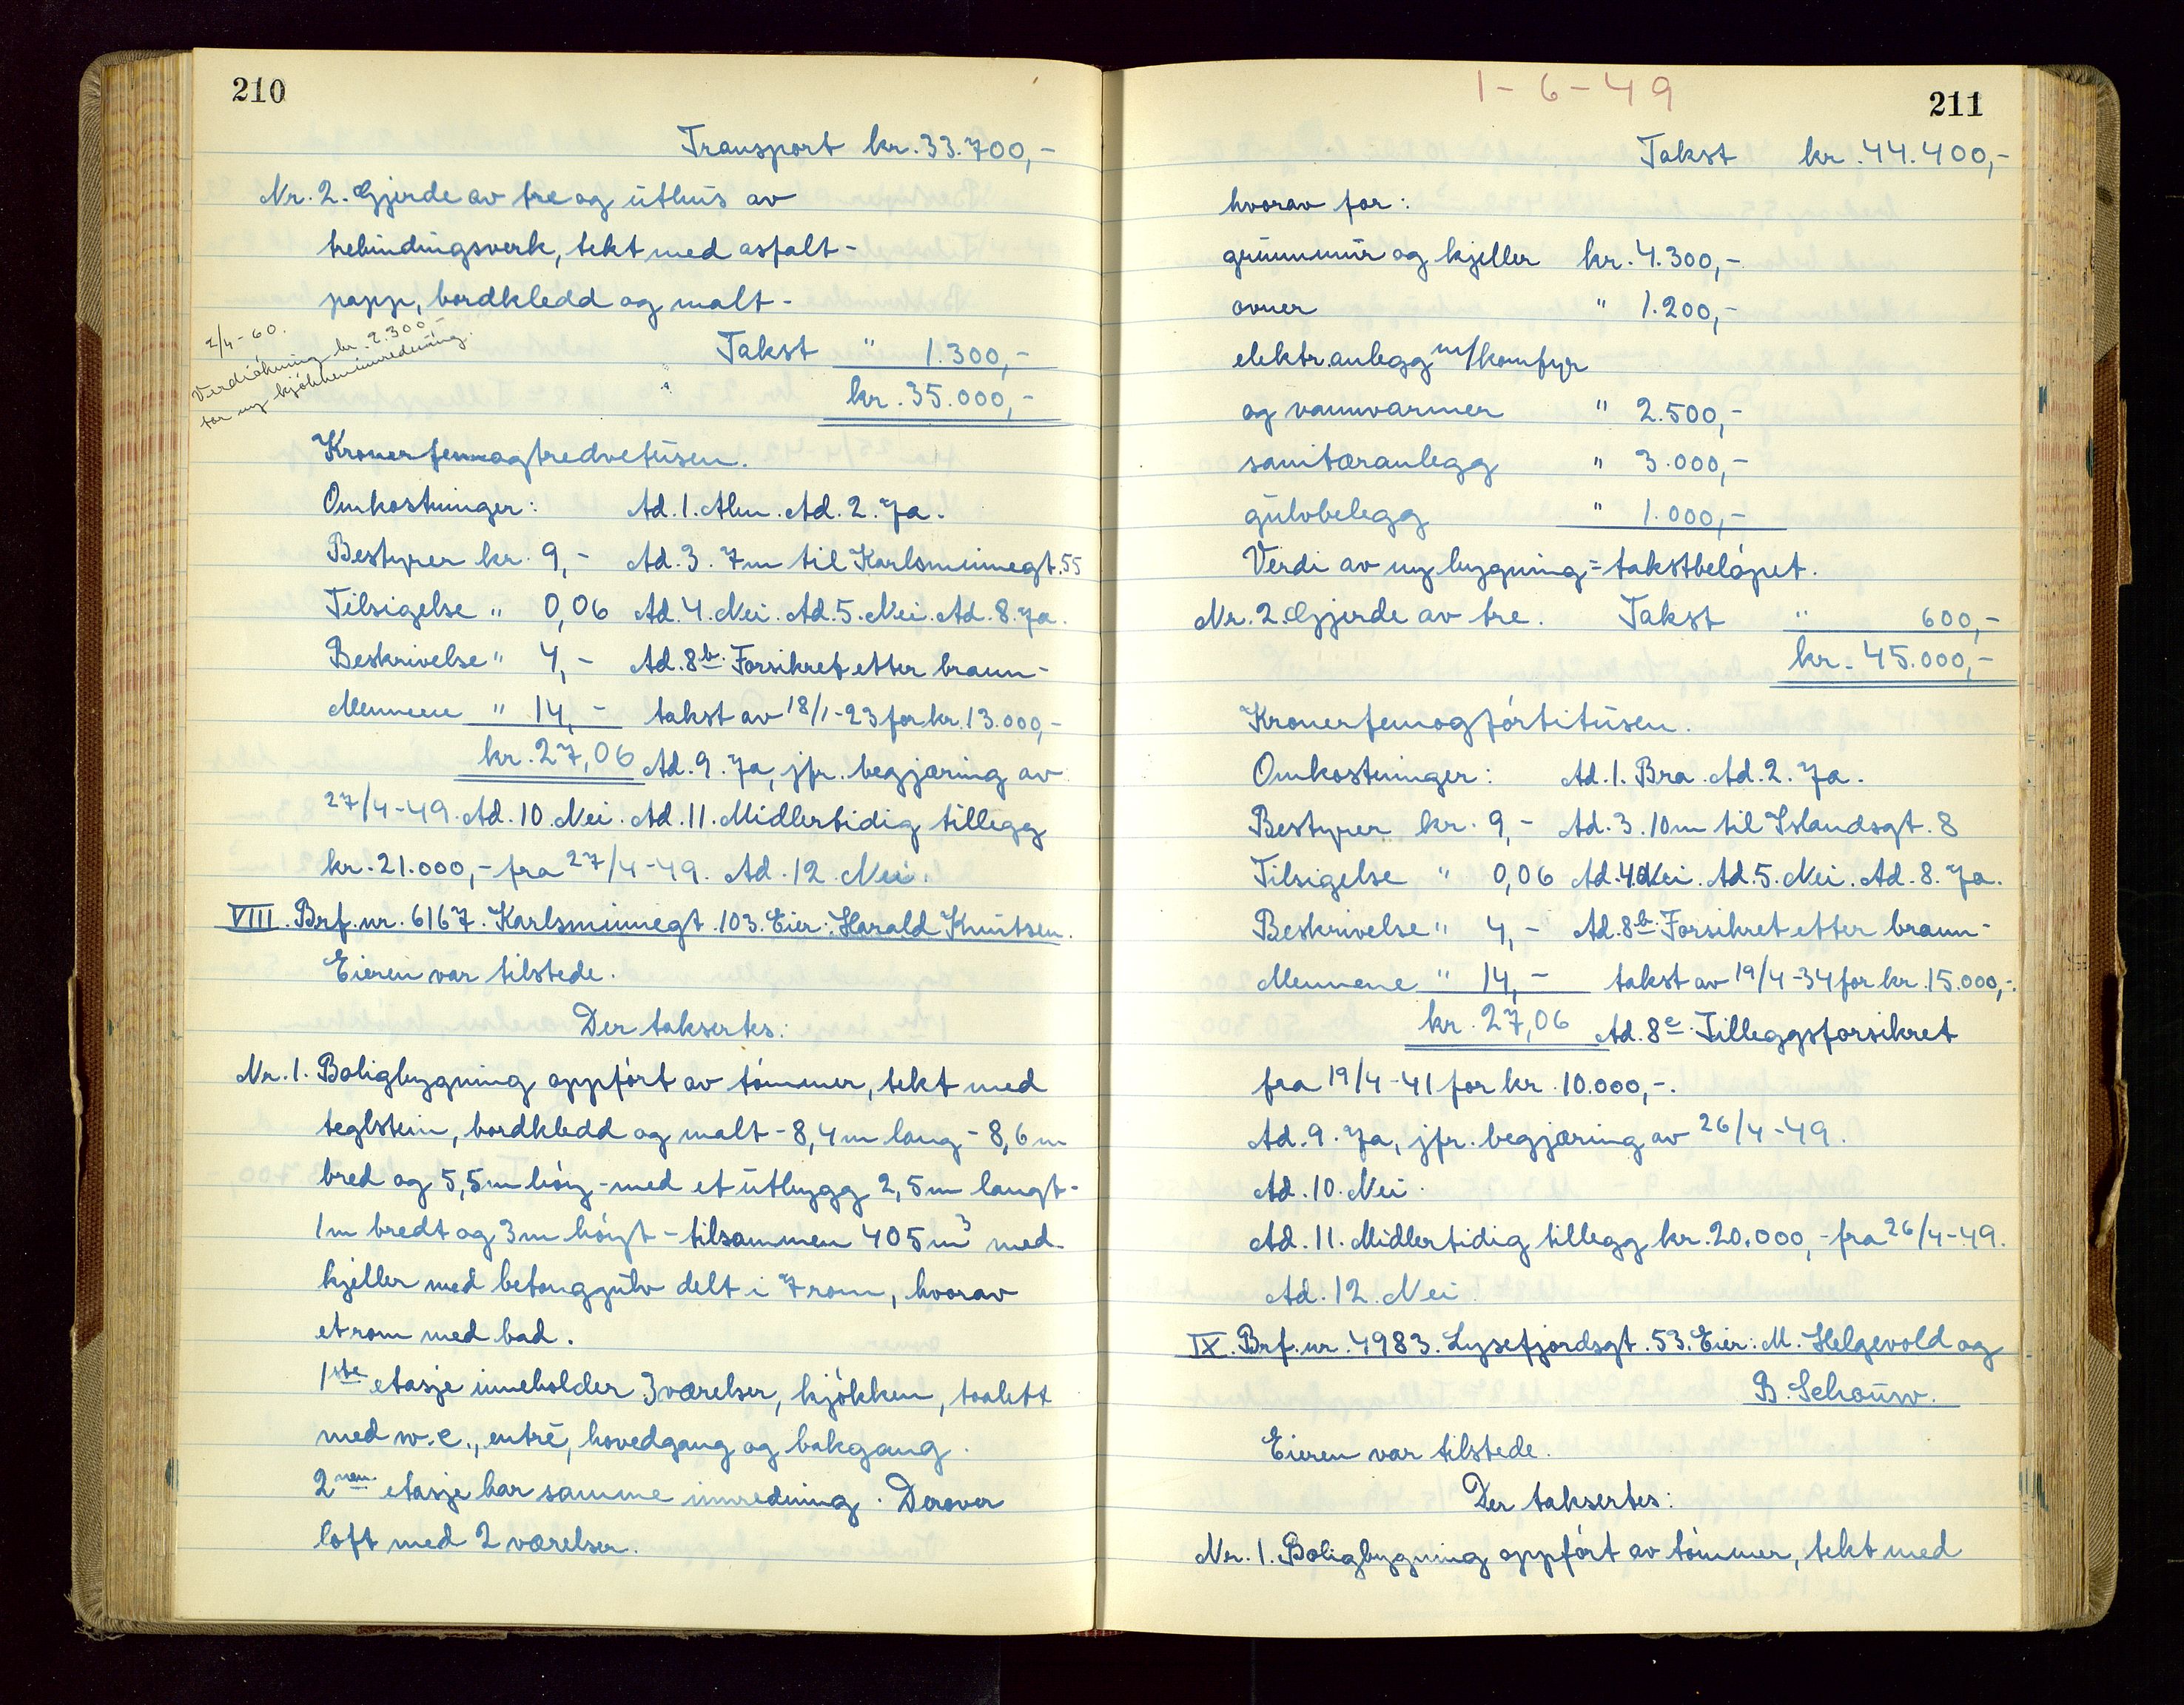 210
Transport kr. 33.700,-
Nr. 2. Gjerde av tre og uthus av
trebindingsverk, tekt med asfalt-
papp, bordkledd og malt -
Takst " 1.300,-
kr. 35.000,-
2/4-60.
Verdiökning kr. 2.300,-
for ny kjökkeninnredning.
Kronerfemogtredvetusen.
Omkostninger: Ad. 1. Alm. Ad. 2. Ja.
Bestyrer kr. 9,- Ad. 3. 7m til Karlsminnegt. 55
Tilsigelse " 0,06 Ad. 4. Nei. Ad. 5. Nei. Ad. 8. Ja.
Beskrivelse " 4,- Ad. 8b. Forsikret etter brann-
Mennene " 14,- takst av 18/1-23 for kr. 13.000,-
kr. 27,06 Ad. 9. Ja, jfr. begjæring av
27/4-49. Ad. 10. Nei. Ad. 11. Midlertidig tillegg
kr. 21.000,- fra 27/4-49. Ad. 12. Nei.
VIII. Brf. nr. 6167. Karlsminnegt. 103. Eier: Harald Knutsen.
Eieren var tilstede.
Der taksertes:
Nr. 1. Boligbygning oppfört av tömmer, tekt med
teglstein, bordkledd og malt - 8,4m lang - 8,6m
bred og 5,5m höig - med et utbygg 2,5m langt -
1m bredt og 3m höigt - tilsammen 405 m3 med
kjeller med betonggulv delt i 7 rom, hvorav
et rom med bad.
1ste etasje inneholder 3 værelser, kjökken, toalett
med w.c., entré, hovedgang og bakgang.
2nen etasje har samme innredning. Derover
loft med 2 værelser.
1-6-49
211
Takst kr. 44.400,-
hvorav for:
grunnmur og kjeller kr. 4.300,-
ovner " 1.200,-
elektr. anlegg m/komfyr
og vannvarmer " 2.500,-
sanitæranlegg " 3.000,-
gulvbelegg " 1.000,-
Verdi av ny bygning = takstbelöpet.
Nr. 2. Gjerde av tre. Takst " 600,-
kr. 45.000,-
Kronerfemogförtitusen.
Omkostninger: Ad. 1. Bra. Ad. 2. Ja.
Bestyrer kr. 9,- Ad. 3. 10m til Islandsgt. 8
Tilsigelse " 0,06 Ad. 4. Nei. Ad. 5. Nei. Ad. 8. Ja.
Beskrivelse " 4,- Ad. 8b. Forsikret etter brann-
Mennene " 14,- takst av 19/4-34 for kr. 15.000,-.
kr. 27,06 Ad. 8c. Tilleggsforsikret
fra 19/4-41 for kr. 10.000,-.
Ad. 9. Ja, jfr. begjæring av 26/4-49.
Ad. 10. Nei.
Ad. 11. Midlertidig tillegg kr. 20.000,- fra 26/4-49.
Ad. 12. Nei.
IX. Brf. nr. 4983. Lysefjordsgt. 53. Eier: M. Helgevold og
B. Schouw.
Eieren var tilstede.
Der taksertes:
Nr. 1. Boligbygning oppfört av tömmer, tekt med